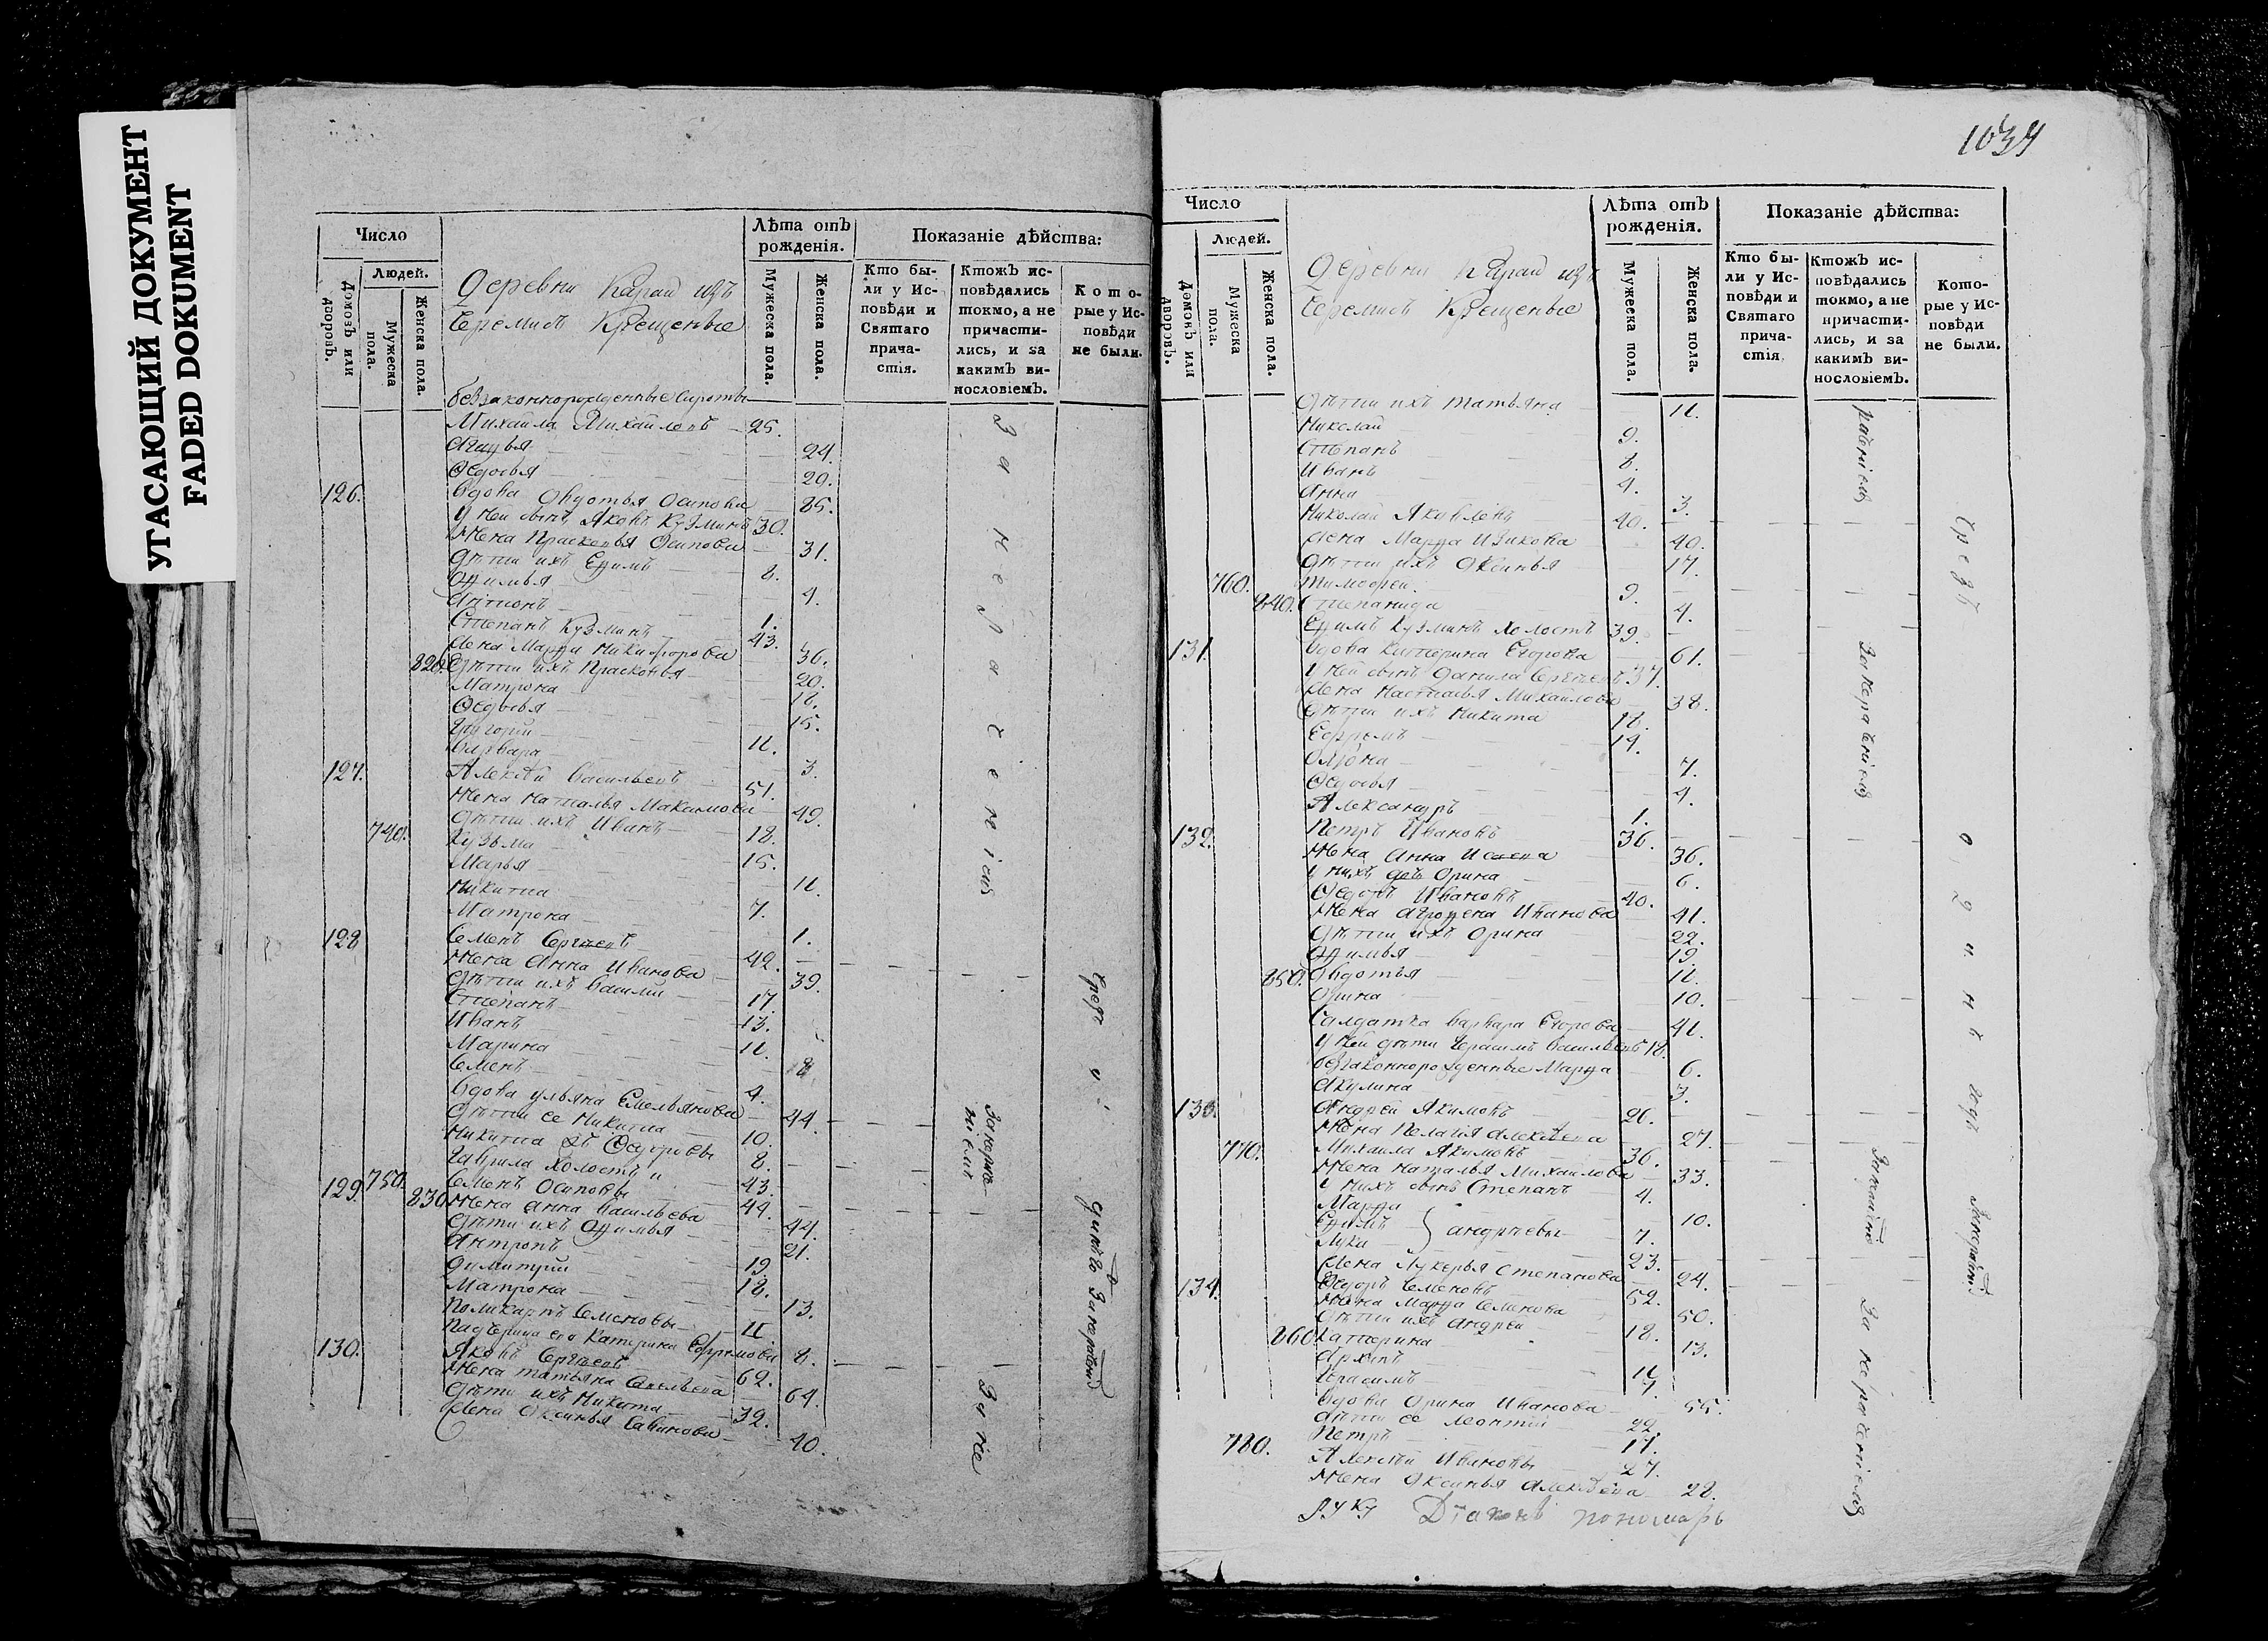 УГАСАЮЩИЙ ДОКУМЕНТ
FADED DOKUMENT
Число
Людей.
Домовъ или дворовъ.
Мужеска пола.
Женска пола.
Деревни Карай изъ
Черемисъ Крещеные
Лѣта отъ рожденія.
Мужеска пола.
Женска пола.
Показаніе дѣйства:
Кто были у Исповѣди и Святаго причастія.
Ктожъ исповѣдались токмо, а не причастились, и за какимъ винословіемъ.
Которые у Исповѣди не были.
беззаконнорожденные Сироты
Михайла Михайловъ 25.
24.
Ѳедосья 29.
126. Вдова Овдотья Осипова 85.
У ней сынъ Яковъ Кузминъ 30.
Жена Прасковья Осипова 31.
Дѣти ихъ Ефимъ 8.
Офимья 4.
Антонъ 1.
Степанъ Кузминъ 43.
Жена Марфа Никифорова 36.
820. Дѣти ихъ Прасковья 20.
Матрона 18.
Ѳедосья 15.
Григорій 11.
Варвара 3.
127. Алексѣй Васильевъ 51.
Жена Наталья Максимова 49.
Дѣти ихъ Иванъ 18.
740. Кузьма 15.
Марья 11.
Никита 7.
Матрона 1.
128. Семенъ Сергѣевъ 42.
Жена Анна Иванова 39.
Дѣти ихъ Василій 17.
Степанъ 13.
Иванъ 11.
Марина 8.
Семенъ 4.
Вдова Ульяна Емельянова 44.
Дѣти ее Никита 10.
Никита Ѳедоровы 8.
Гаврила холостъ и 43.
129. 750. Семенъ Осиповы 44.
830. Жена Анна Васильева 44.
Дѣти ихъ Офимья 21.
Антропъ 19.
Димитрій 18.
Матрона 13.
Поликарпъ Семеновы 11.
Падчерица его Катерина Ефремова 8.
130. Яковъ Сергѣевъ 62.
Жена Татьяна Савельева 64.
Дѣти ихъ Никита 32.
Жена Оксинья Савинова 40.
За нераченіемъ
За нераченіемъ
За не
1034
Число
Людей.
Домовъ или дворовъ.
Мужеска пола.
Женска пола.
Деревни Карай изъ
Черемисъ Крещеные
Лѣта отъ рожденія.
Мужеска пола.
Женска пола.
Показаніе дѣйства:
Кто были у Исповѣди и Святаго причастія.
Ктожъ исповѣдались токмо, а не причастились, и за какимъ винословіемъ.
Которые у Исповѣди не были.
Дѣти ихъ Татьяна 11.
Николай 9.
Степанъ 8.
Иванъ 4.
Анна 3.
Николай Яковлевъ 40.
Жена Марфа Исакова 40.
Дѣти ихъ Оксинья 17.
760. Тимофей 9.
840. Степанида 4.
Ефимъ Кузминъ холостъ 39.
131. Вдова Катерина Егорова 61.
У ней сынъ Данила Сергѣевъ 37.
Жена Настасья Михайлова 38.
Дѣти ихъ Никита 18.
Ефремъ 14.
7.
Ѳедосья 4.
Александръ 1.
132. Петръ Ивановъ 36.
Жена Анна Исаева 36.
У нихъ дочь Орина 6.
Ѳедоръ Ивановъ 40.
Жена Агрофена Иванова 41.
Дѣти ихъ Орина 22.
Офимья 19.
850. Овдотья 11.
Орина 10.
Салдатка Варвара Егорова 41.
У ней дѣти Герасимъ Васильевъ 18.
беззаконнорожденные Марфа 6.
Акулина 3.
133. Андрей Якимовъ 26.
Жена Пелагія Алексѣева 27.
770. Михайла Якимовъ 36.
Жена Наталья Михайлова 33.
У нихъ сынъ Степанъ 4.
Марфа 10.
Ефимъ 7.
Лука Андреевы 23.
Жена Лукерья Степанова 24.
134. Ѳедоръ Семеновъ 52.
Жена Марфа Семенова 50.
Дѣти ихъ Андрей 18.
860. Катерина 13.
Архипъ 11.
Герасимъ 7.
Вдова Орина Иванова 55.
Дѣти ее Леонтій 22.
Петръ 17.
780. Алексѣй Ивановы 27.
Жена Оксинья Алексѣева 28.
раченіемъ
За нераченіемъ
За нераченіемъ
Чрезъ одинъ годъ
руку Діаконъ пономарь